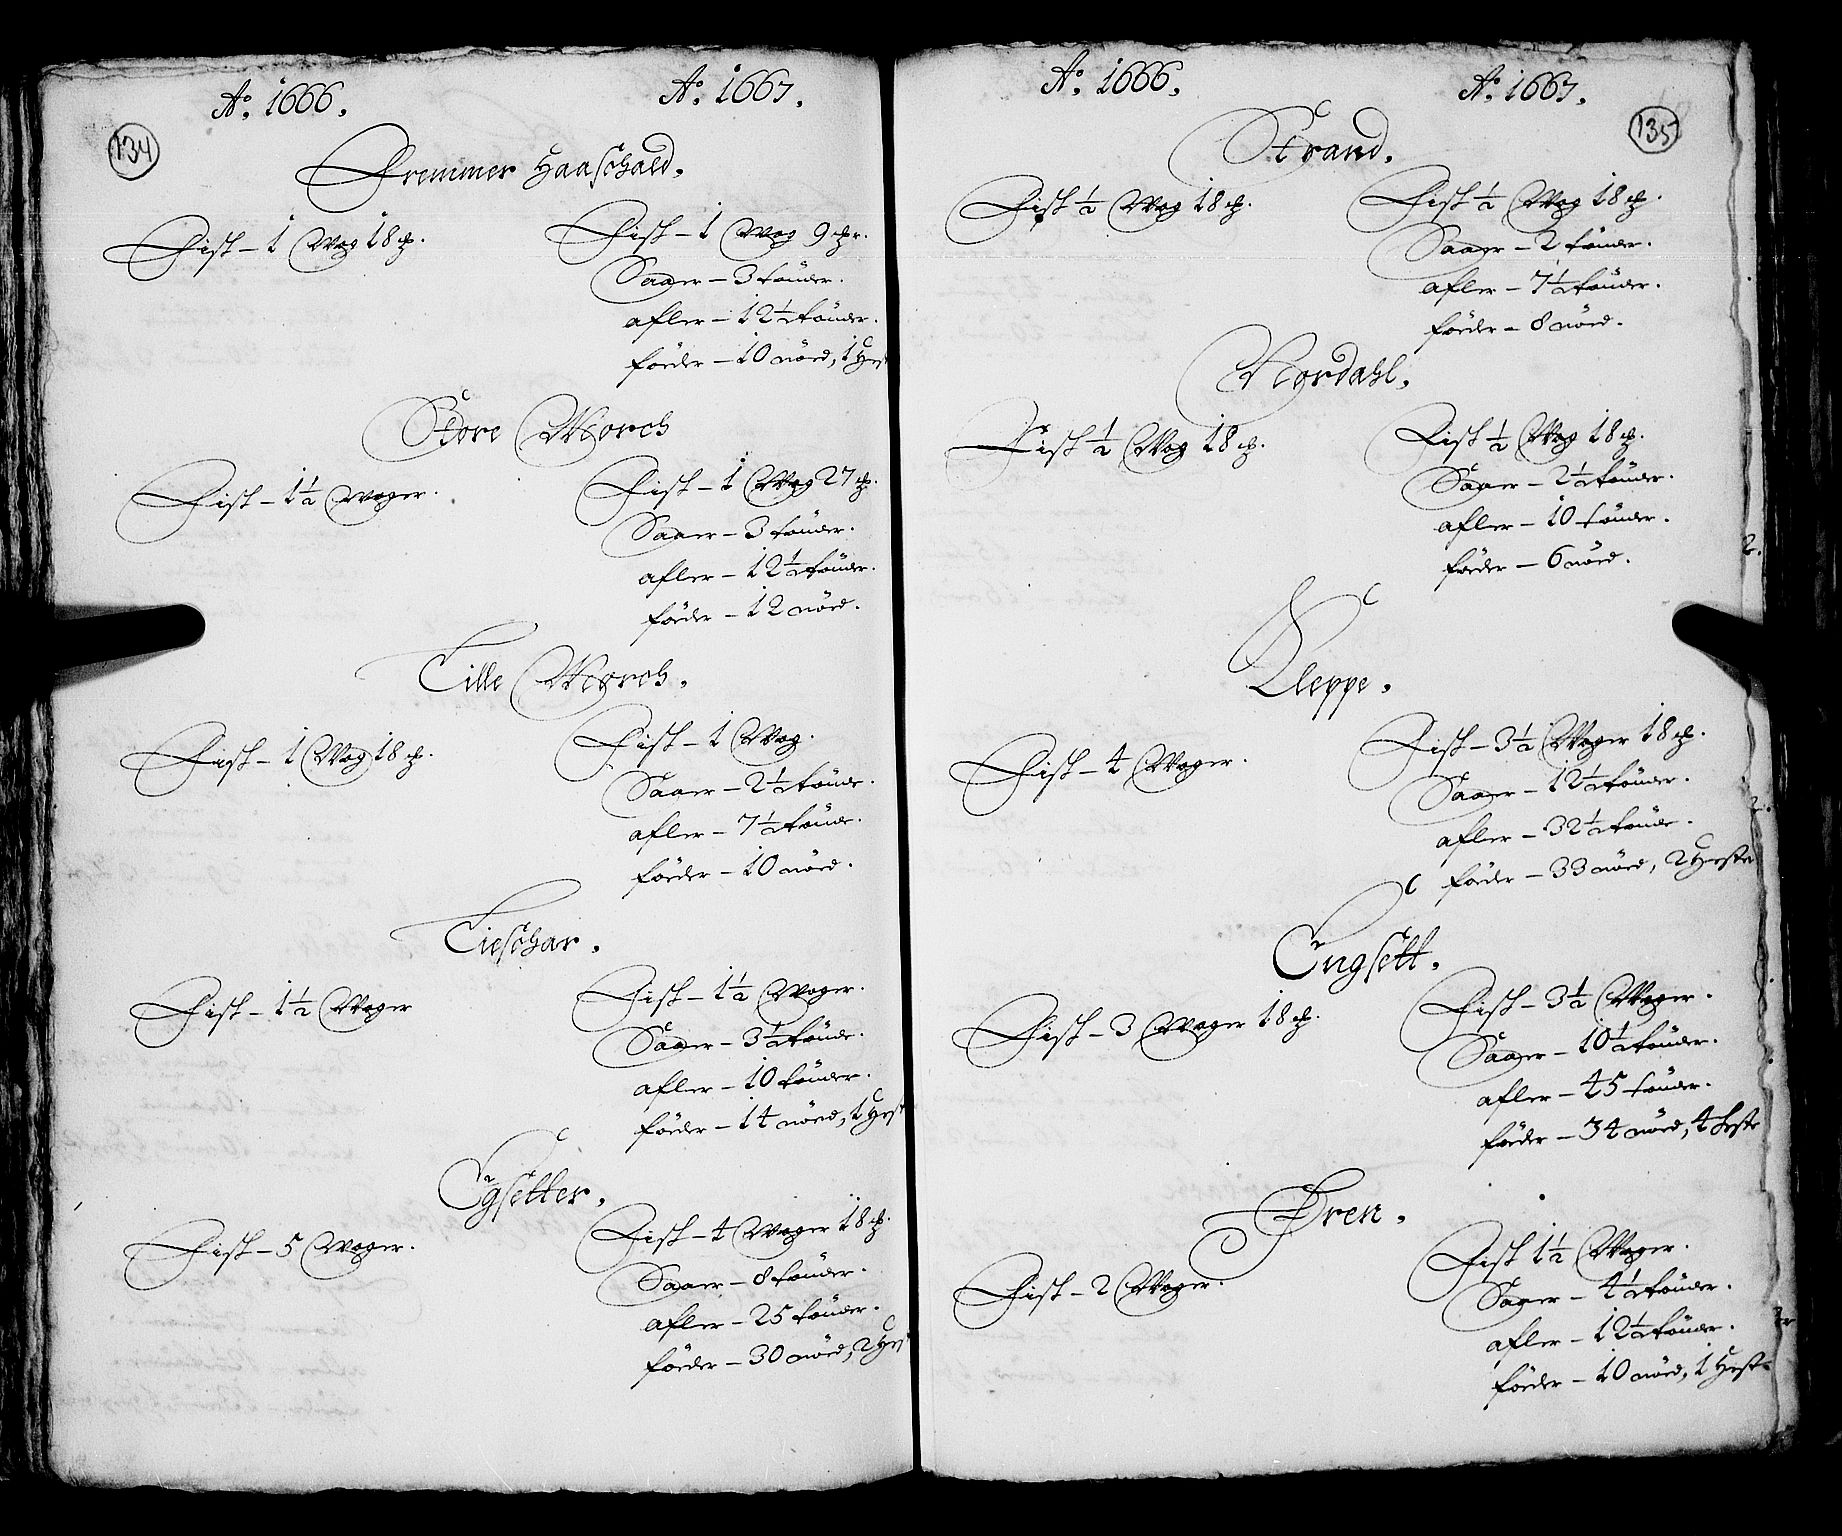 Ao. 1666.
Ao. 1667.
134
Fremmer Haaschald.
Fisk – 1 Wog 18 ℔.
Fisk – 1 Wog 9 ℔r.
Saaer – 3 tönder.
afler – 12½ tönder.
föeder – 10 nöed, 1 Hest
Store Morch
Fisk – 1½ woger.
Fisk – 1 Wog 27 ℔.
Saaer – 3 tönder.
afler – 12½ tönder.
föeder – 12 nöed.
Lille Mørch.
Fisk – 1 Wog 18 ℔.
Fisk – 1 Wog.
Saaer – 2½ tönde.
afler – 7½ tönde.
föeder – 10 nöed.
Lieschar.
Fisk – 1½ Woger
Fisk – 1½ Woger.
Saaer – 3½ tönde.
afler – 10 tönder.
föeder – 14 nöed, 1 Hest
Egsetter.
Fisk – 5 Woger.
Fisk – 4 Woger 18 ℔.
Saaer – 8 tönder.
afler – 25 tönder.
föeder – 30 nöed, 2 Hest
Ao. 1666.
Ao. 1667.
135
Strand.
Fisk ½ Wog 18 ℔.
Fisk ½ Wog 18 ℔.
Saaer – 2 tönder.
afler – 7½ tönder.
föeder – 8 nöed.
Nordahl.
Fisk ½ Wog 18 ℔.
Fisk ½ Wog 18 ℔.
Saaer – 2½ tönder.
afler – 10 tönder.
föeder – 6 nöed.
Kleppe.
Fisk – 4 Woger.
Fisk – 3½ Woger 18 ℔.
Saaer – 12½ tönder.
afler – 32½ tönde.
föeder – 33 nöed, 2 Heste
Engsett.
Fisk – 3 Woger 18 ℔.
Fisk – 3½ Woger.
Saaer – 10½ tönder.
afler – 45 tönder.
föeder – 34 nöed, 4 heste
Øren.
Fisk – 2 Woger.
Fisk 1½ Woger.
Saaer – 4½ tönder.
afler – 12½ tönder.
föeder – 10 nöed, 1 Hest